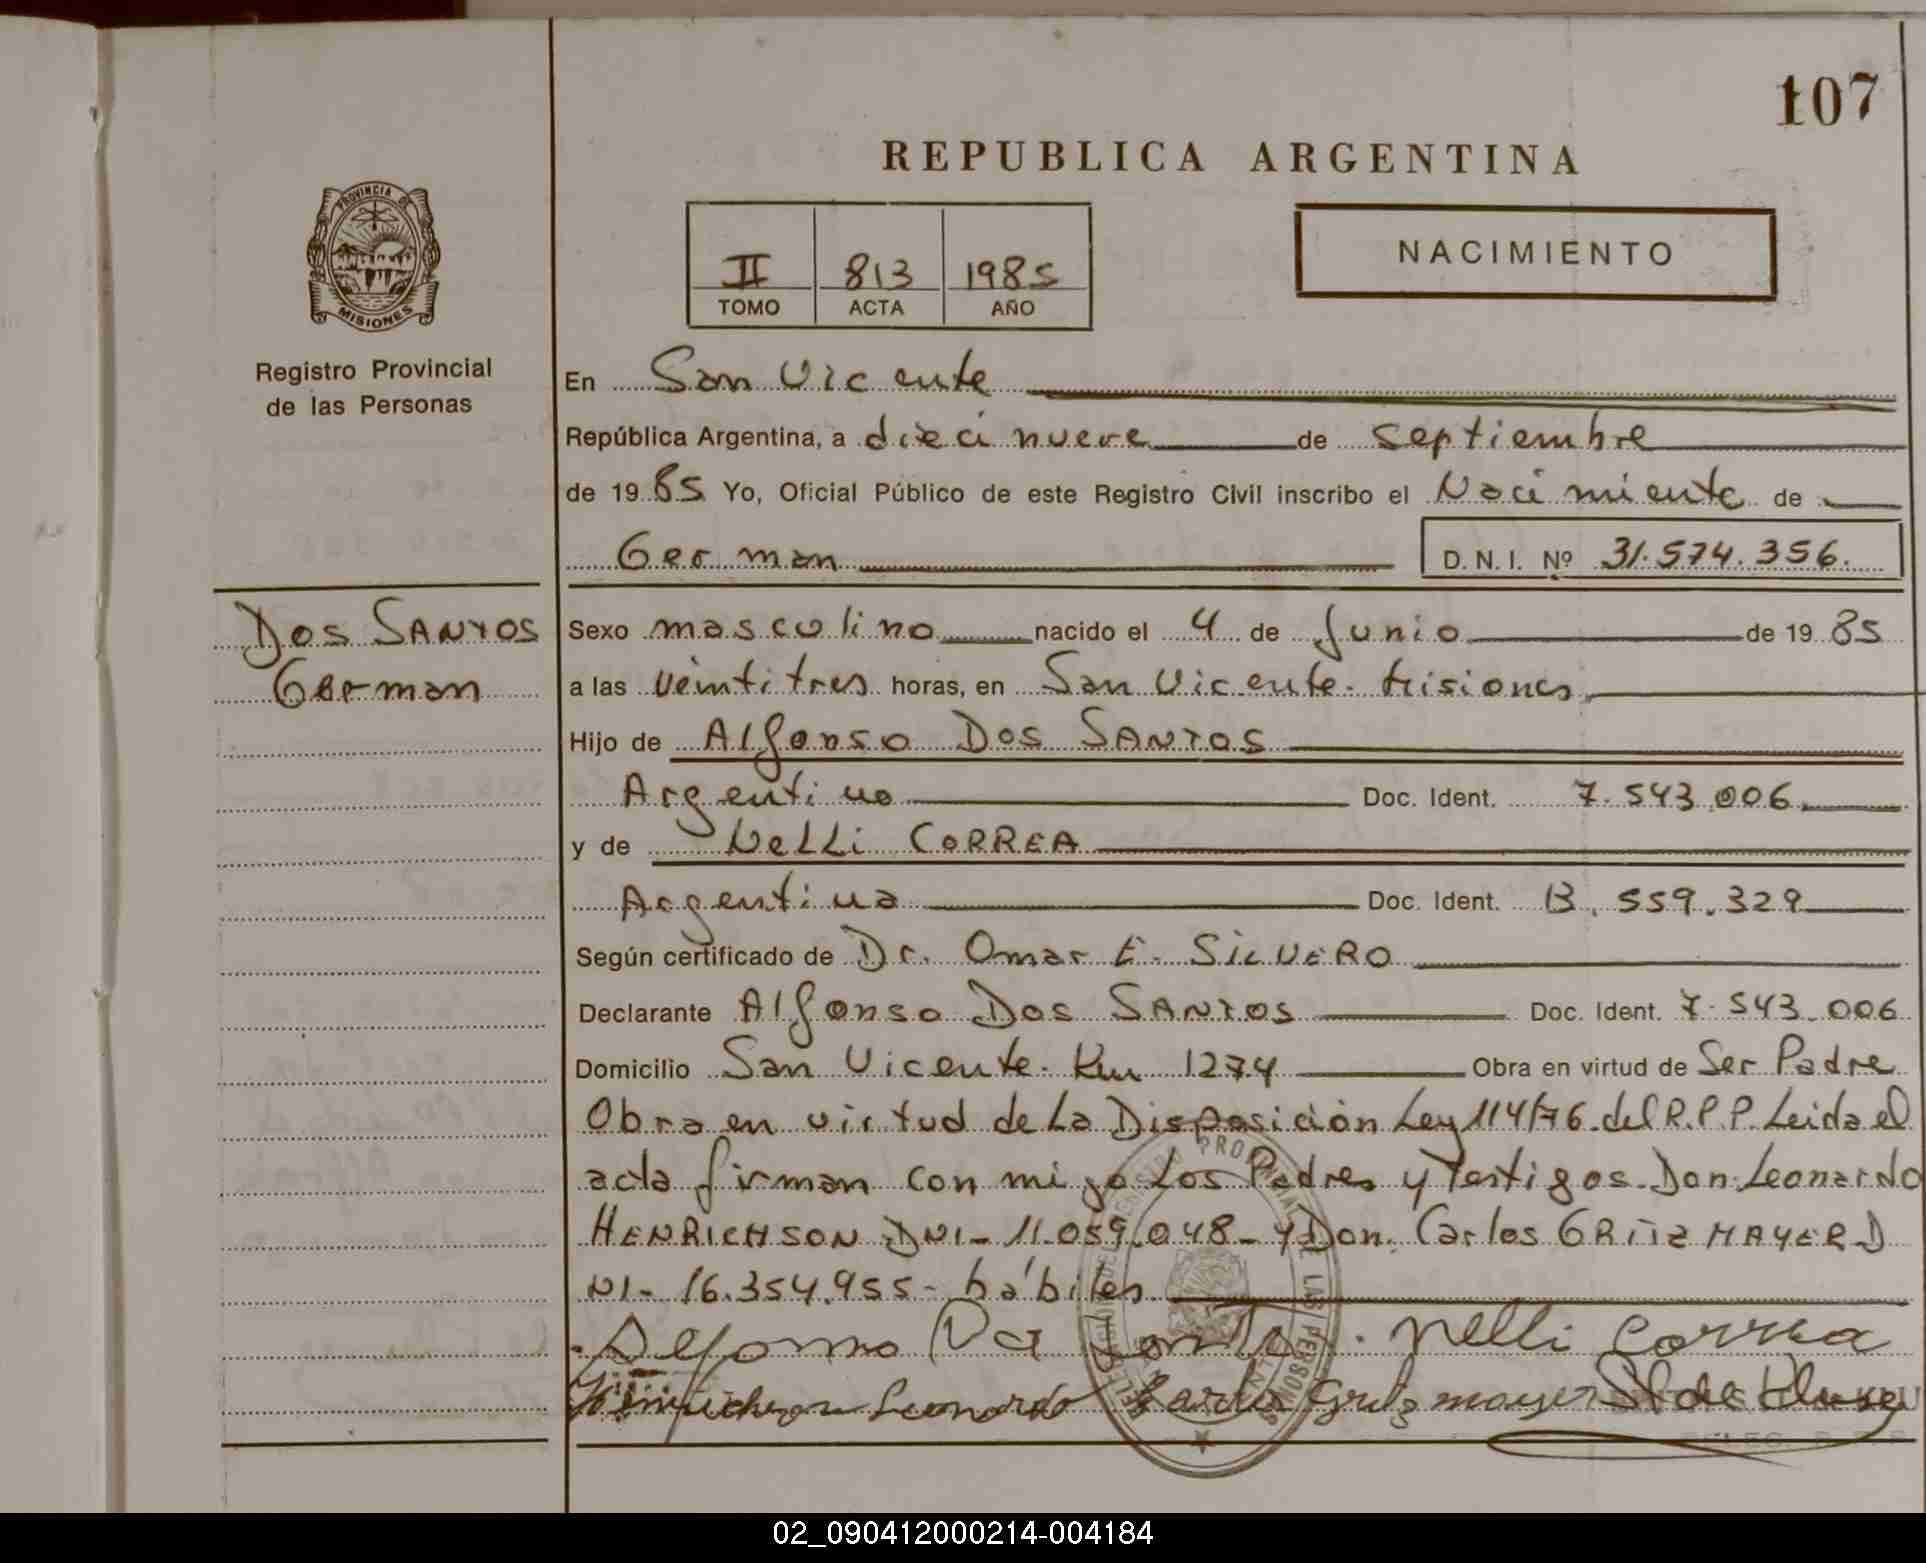 107
REPUBLICA ARGENTINA
PROVINCIA DE
MISIONES
Registro Provincial
de las Personas
II 813 1985
TOMO ACTA AÑO
NACIMIENTO
En San Vicente
República Argentina, a diecinueve de septiembre
de 1985 Yo, Oficial Público de este Registro Civil inscribo el Nacimiento de
German D.N.I. Nº 31.574.356.
Dos SANTOS
German
Sexo masculino nacido el 4 de Junio de 1985
a las veintitres horas, en San Vicente. Misiones
Hijo de Alfonso Dos SANTOS
Argentino Doc. Ident. 7.543.006
y de Nelli CORREA
Argentina Doc. Ident. 13.559.329
Según certificado de Dr. Omar E. SILVERO
Declarante Alfonso Dos SANTOS Doc. Ident. 7.543.006
Domicilio San Vicente. Km 1274 Obra en virtud de Ser Padre
Obra en virtud de La Disposición Ley 114/76 del R.P.P. Leida el
acta firman con migo Los Padres y Testigos. Don Leonardo
HENRICHSON DNI- 11.059.048- y Don. Carlos GRITZMAYER D
NI- 16.354.955- hábiles
Nelli Correa
Leonardo
02_090412000214-004184